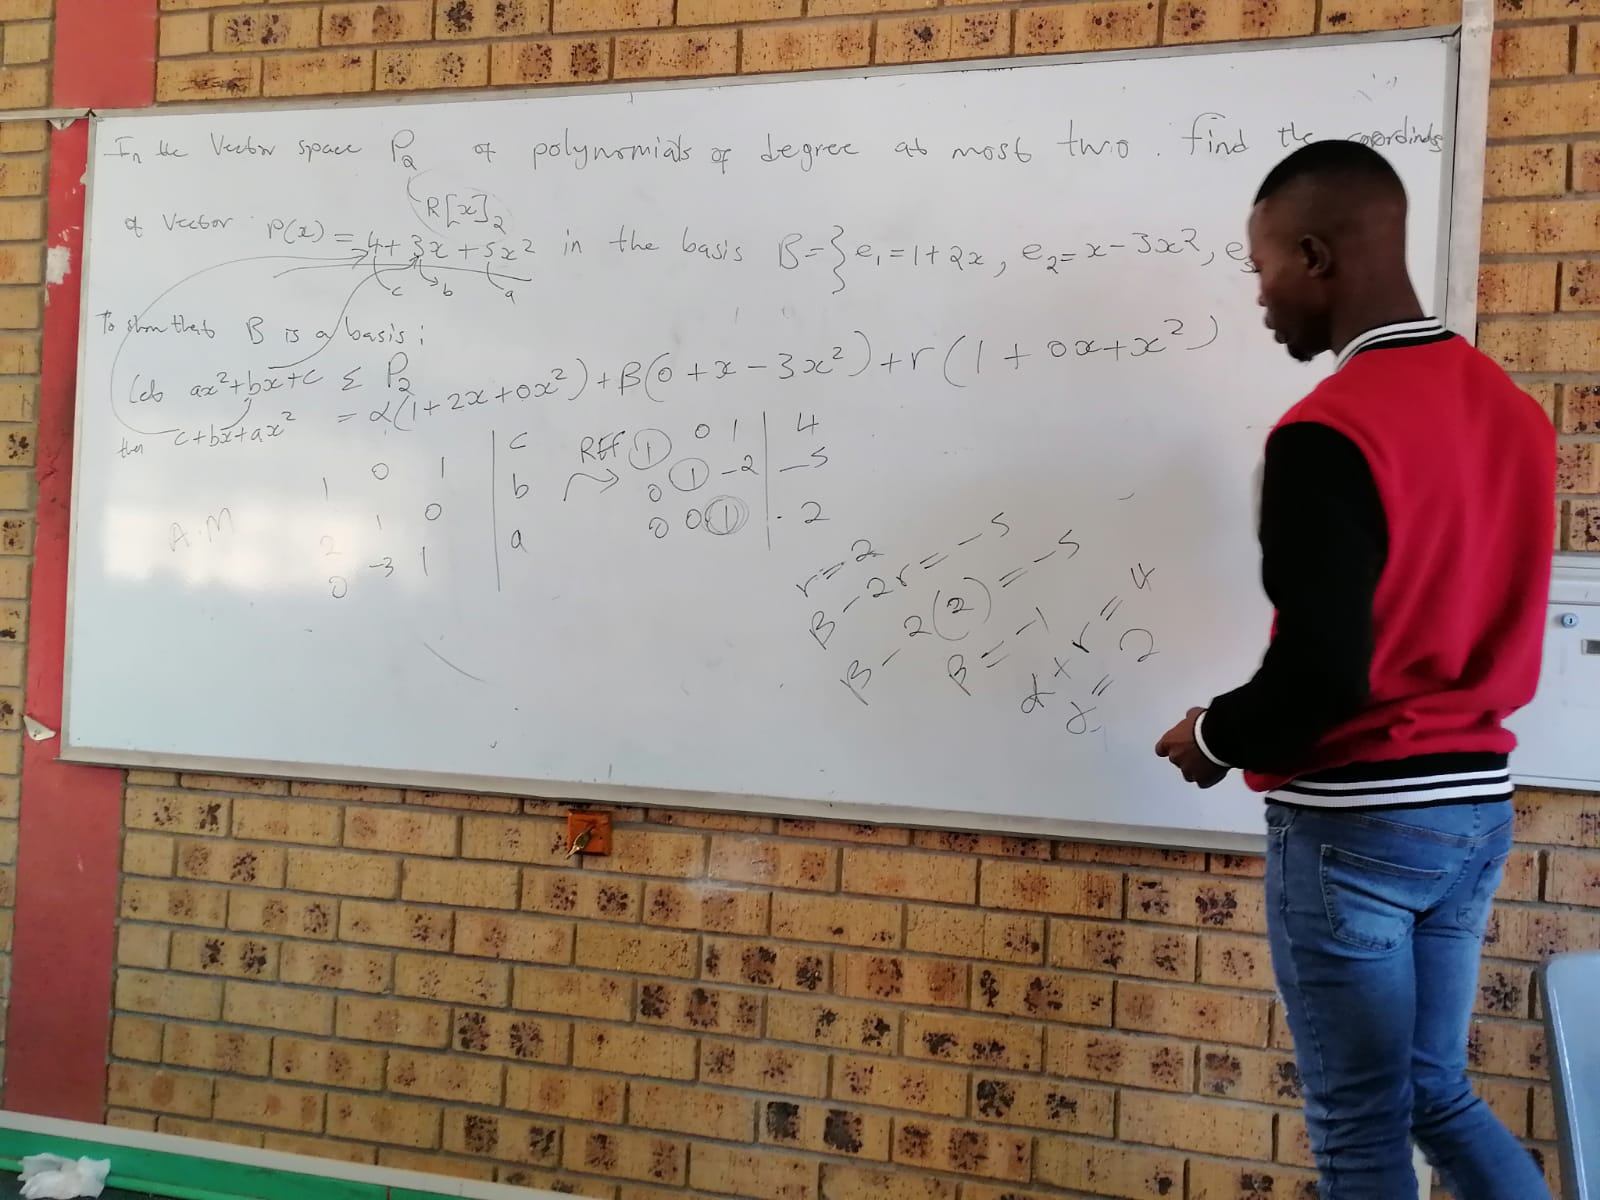 In the Vector space P₂ of polynomials of degree at most two. find the coordinates
R[x]₂
of Vector P(x) = 4 + 3x + 5x² in the basis B = } e₁ = 1 + 2x, e₂ = x - 3x², e₃
c b a
To show that B is a basis:
Let ax² + bx + c Σ P₂
then c + bx + ax² = α(1 + 2x + 0x²) + β(0 + x - 3x²) + r(1 + 0x + x²)
A.M
1 0 1 | c
2 1 0 | b
0 -3 1 | a
REF
1 0 1 | 4
0 1 -2 | -5
0 0 1 | 2
r = 2
β - 2r = -5
β - 2(2) = -5
β = -1
α + r = 4
α = 2